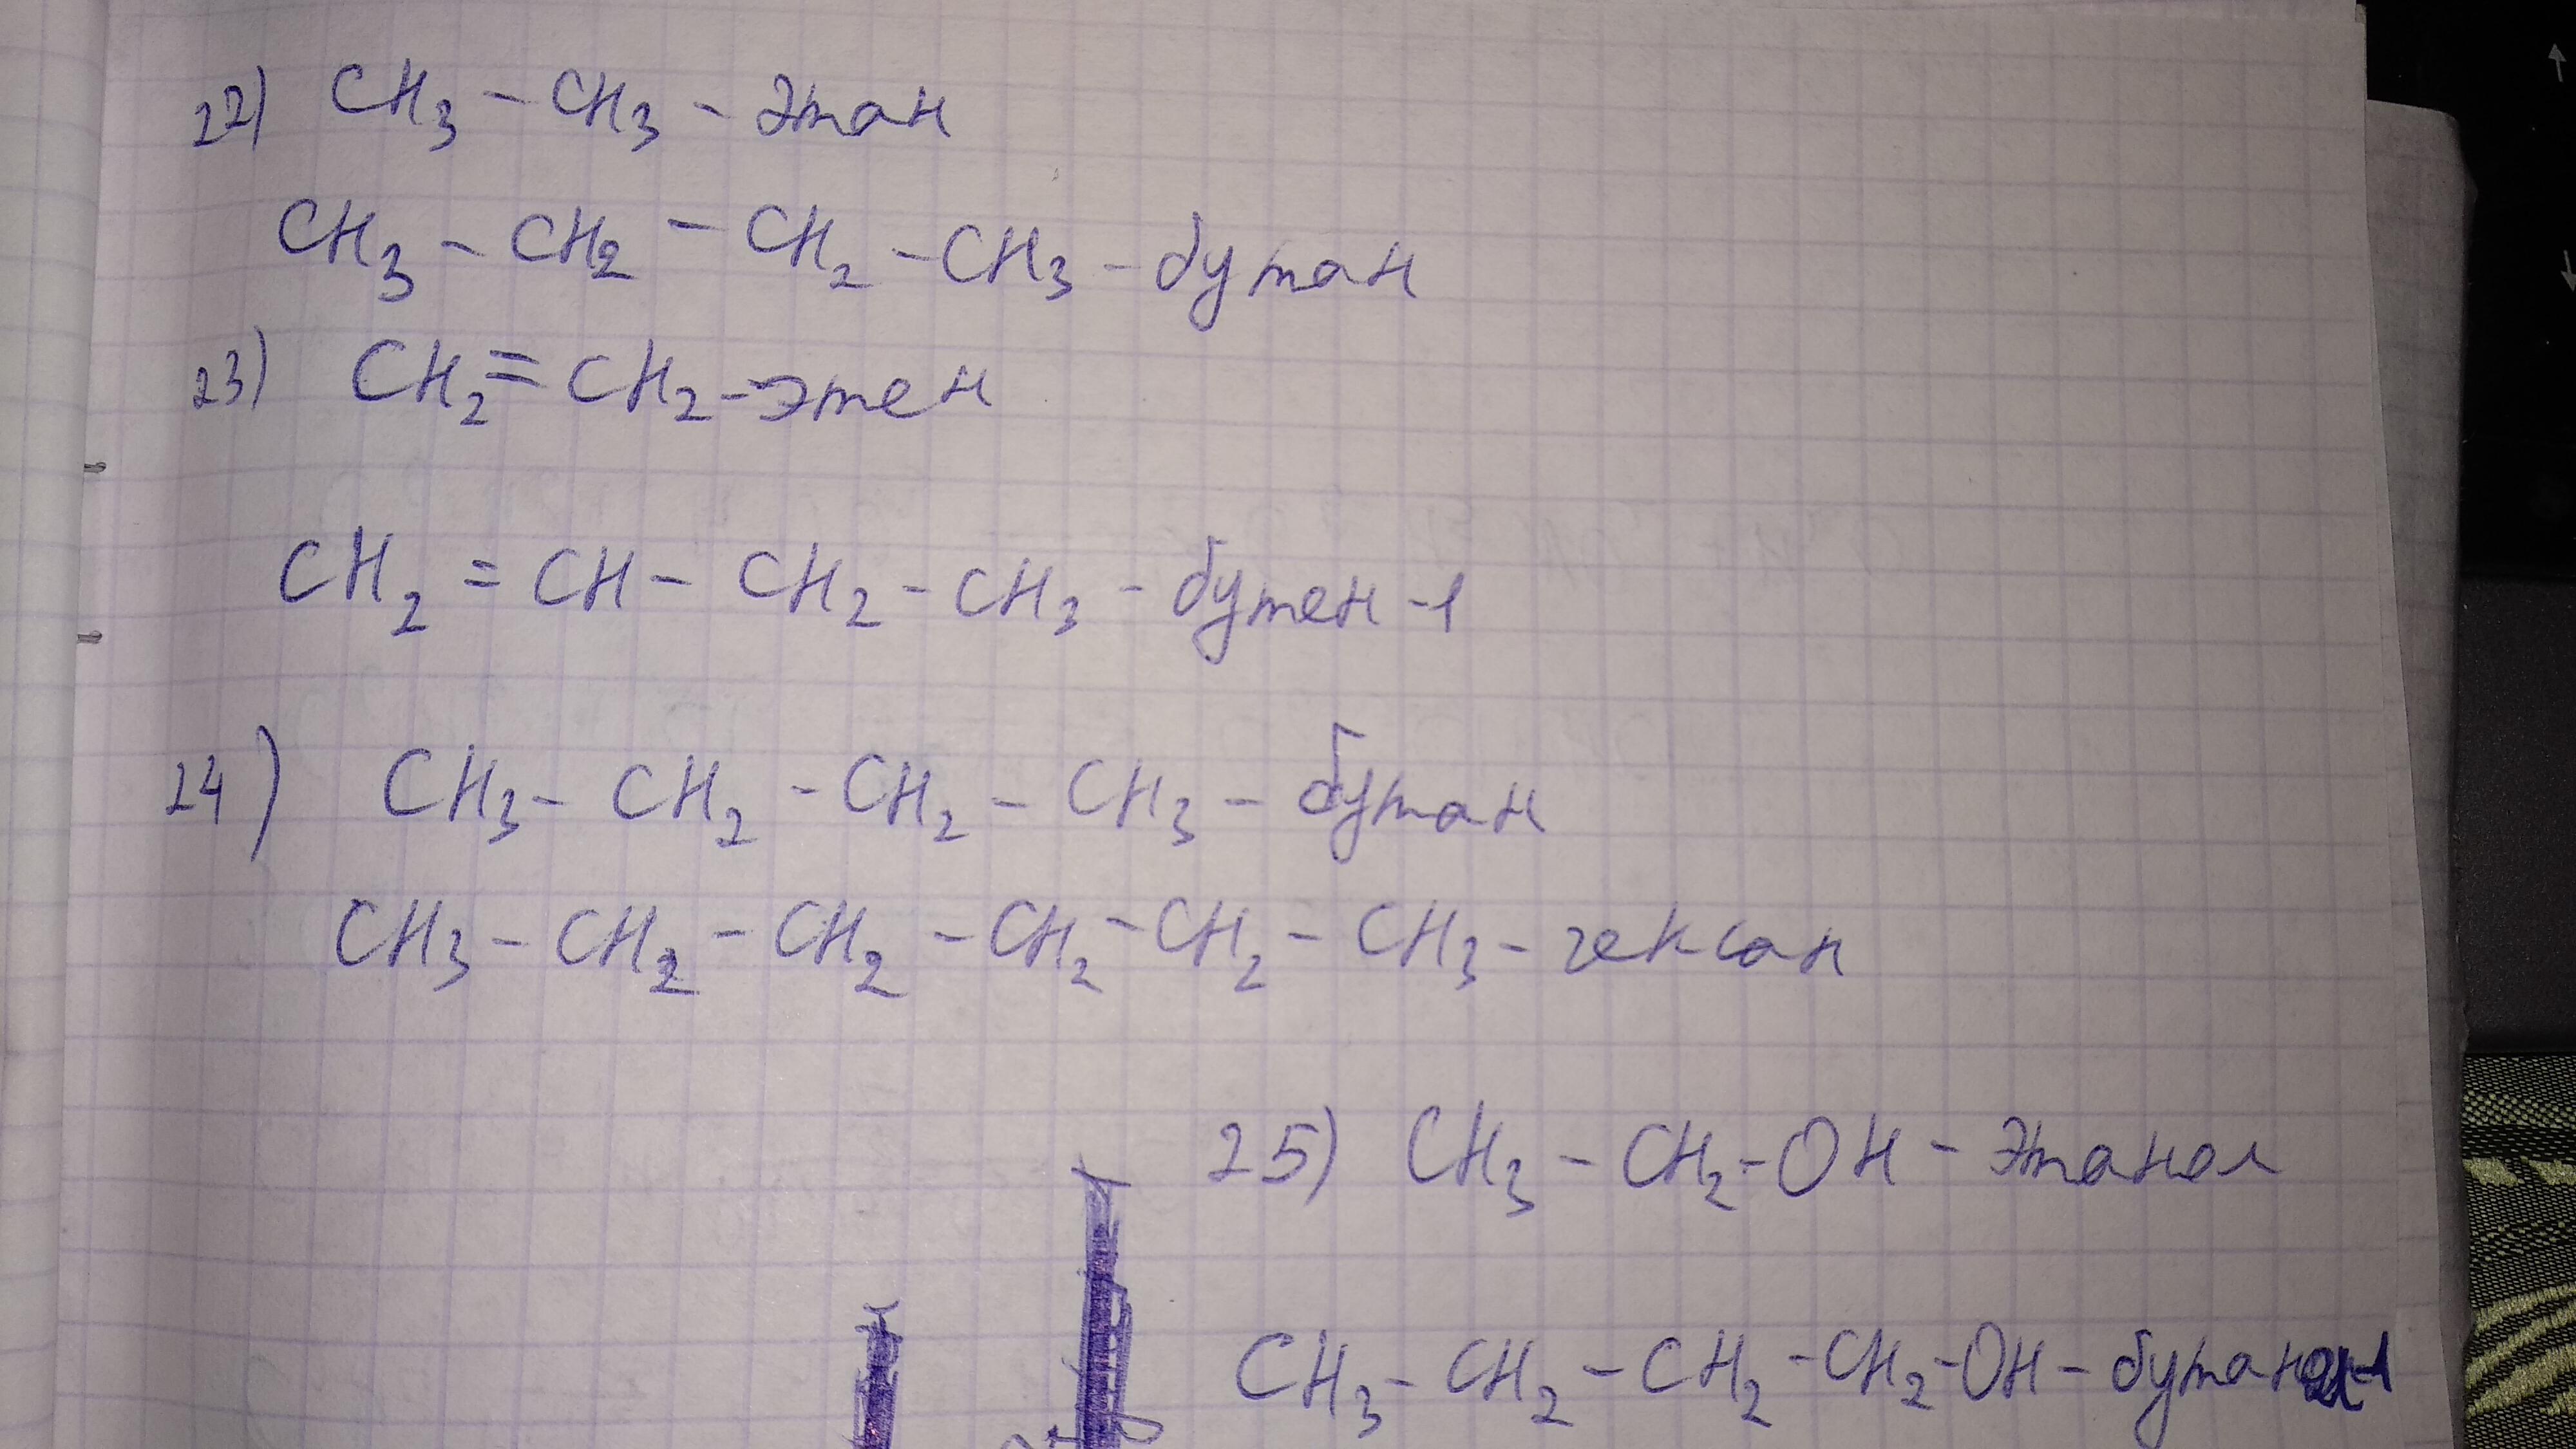 22) CH3 - CH3 - Этан
CH3 - CH2 - CH2 - CH3 - бутан
23) CH2 = CH2 - этен
CH2 = CH - CH2 - CH3 - бутен-1
24) CH3 - CH2 - CH2 - CH3 - бутан
CH3 - CH2 - CH2 - CH2 - CH2 - CH3 - гексан
25) CH3 - CH2 - OH - Этанол
CH3 - CH2 - CH2 - CH2 - OH - бутанол-1